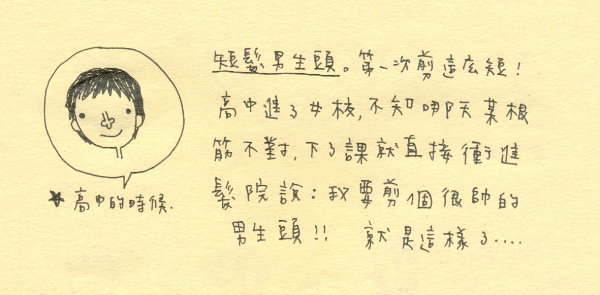 短髮男生頭。第一次剪這么短！
高中進了女校，不知哪天某根
筋不對，下了課就直接衝進
髮院說：我要剪個很帥的
男生頭!! 就是這樣了....
★高中的時候.